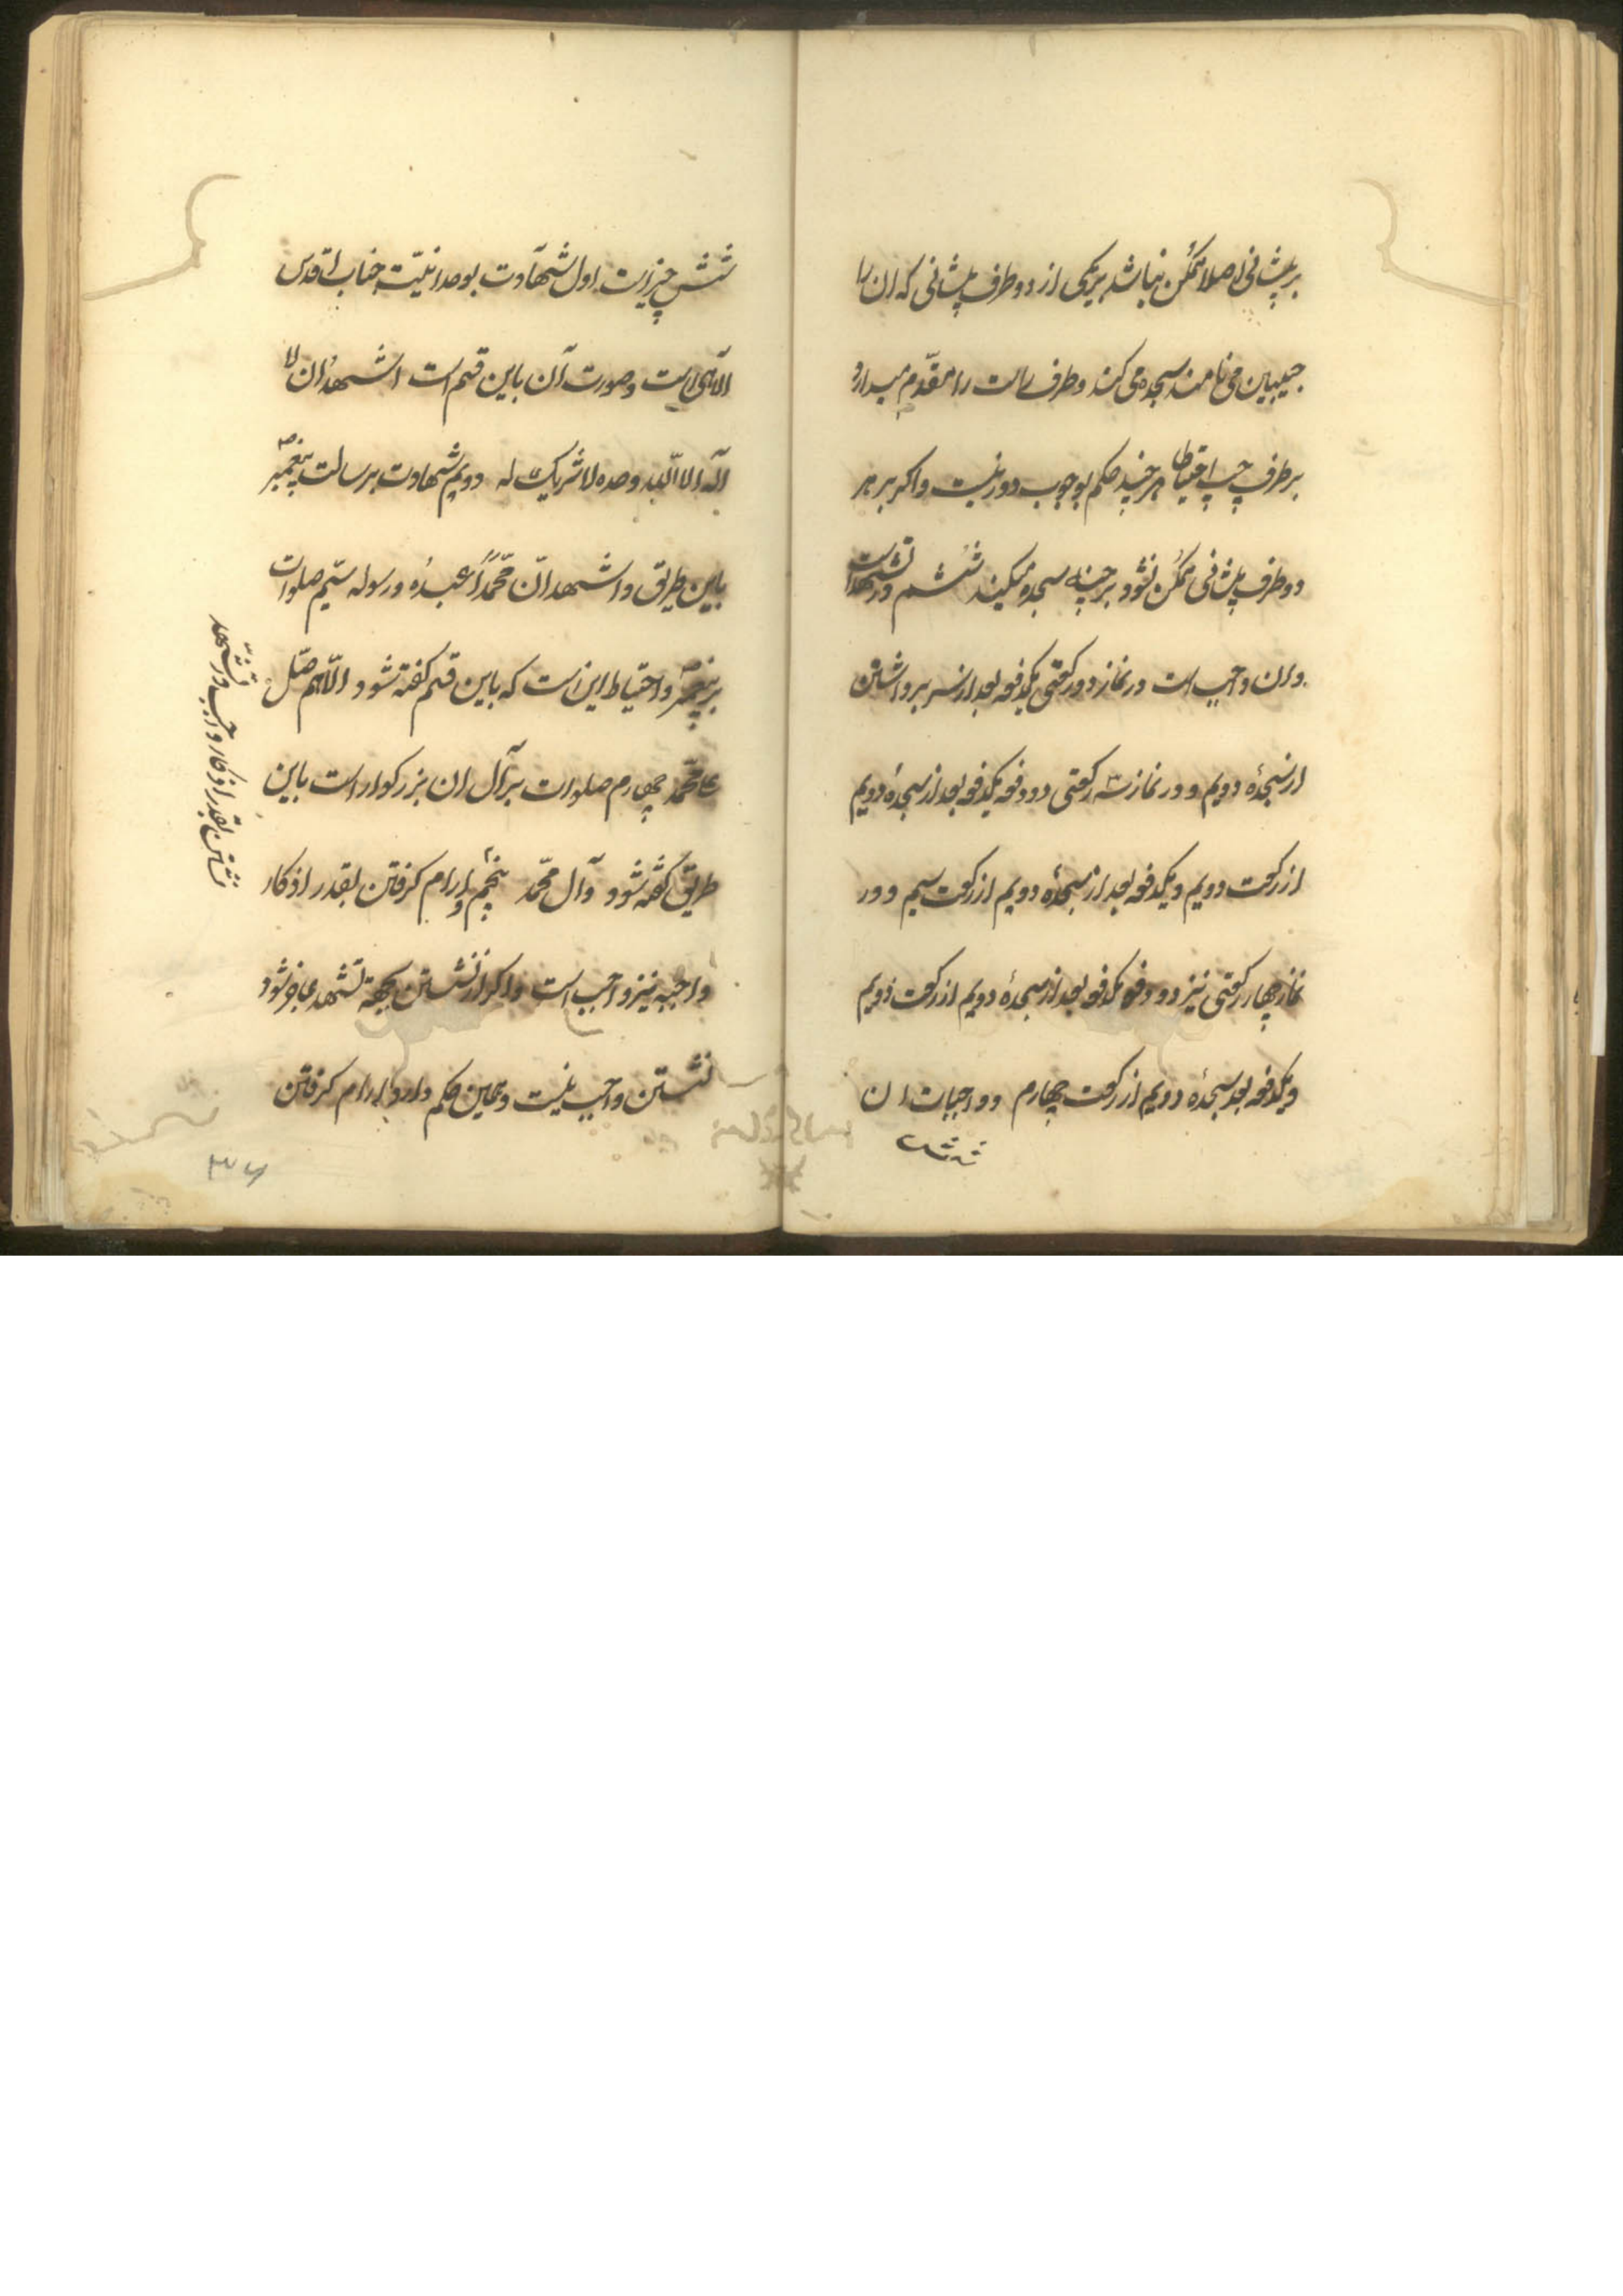 بر پیشانی اصلا ممکن نباشد بر یکی از دو طرف پیشانی که ان را
جبینین می نامند سجده می کند و طرف راست را مقدّم میدارد
بر طرف چپ احتیاطا هر چند حکم بوجوب دور نیست و اکر بر هر
دو طرف پیشانی ممکن نشود بر چانه سجده میکند ششم در تشهد است
و ان واجب است در نماز دو رکعتی یکدفعه بعد از سر برداشتن
از سجدهٔ دویم و در نماز سه رکعتی دو دفعه یکدفعه بعد از سجدهٔ دویم
از رکعت دویم و یکدفعه بعد از سجدهٔ دویم از رکعت سیم و در
نماز چهار رکعتی نیز دو دفعه یکدفعه بعد از سجدهٔ دویم از رکعت دویم
و یکدفعه بعد سجدهٔ دویم از رکعت چهارم و واجبات ان
شش
شش چیز است اول شهادت بوحدانیّت جناب اقدس
الآهی است و صورت آن باین قسم است اشهد ان لا
اله الا الله وحده لا شریک له دویم شهادت برسالت پیغمبر ص
باین طریق و اشهد انّ محمّداً عبدُه و رسوله سیّم صلوات
بر پیغمبر ص و احتیاط این است که باین قسم کفته شود اللّهم صلّ
علی محمّد چهارم صلوات بر آل ان بزرکوار است باین
طریق کفته شود و آل محمّد پنجم و ارام کرفتن بقدر اذکار
واجبه نیز واجب است و اکر از نشستن بجهة تشهد عاجز شود
نشستن واجب نیست و همین حکم دارد ارام کرفتن
نشستن بقدر اذکار واجب در تشهّد